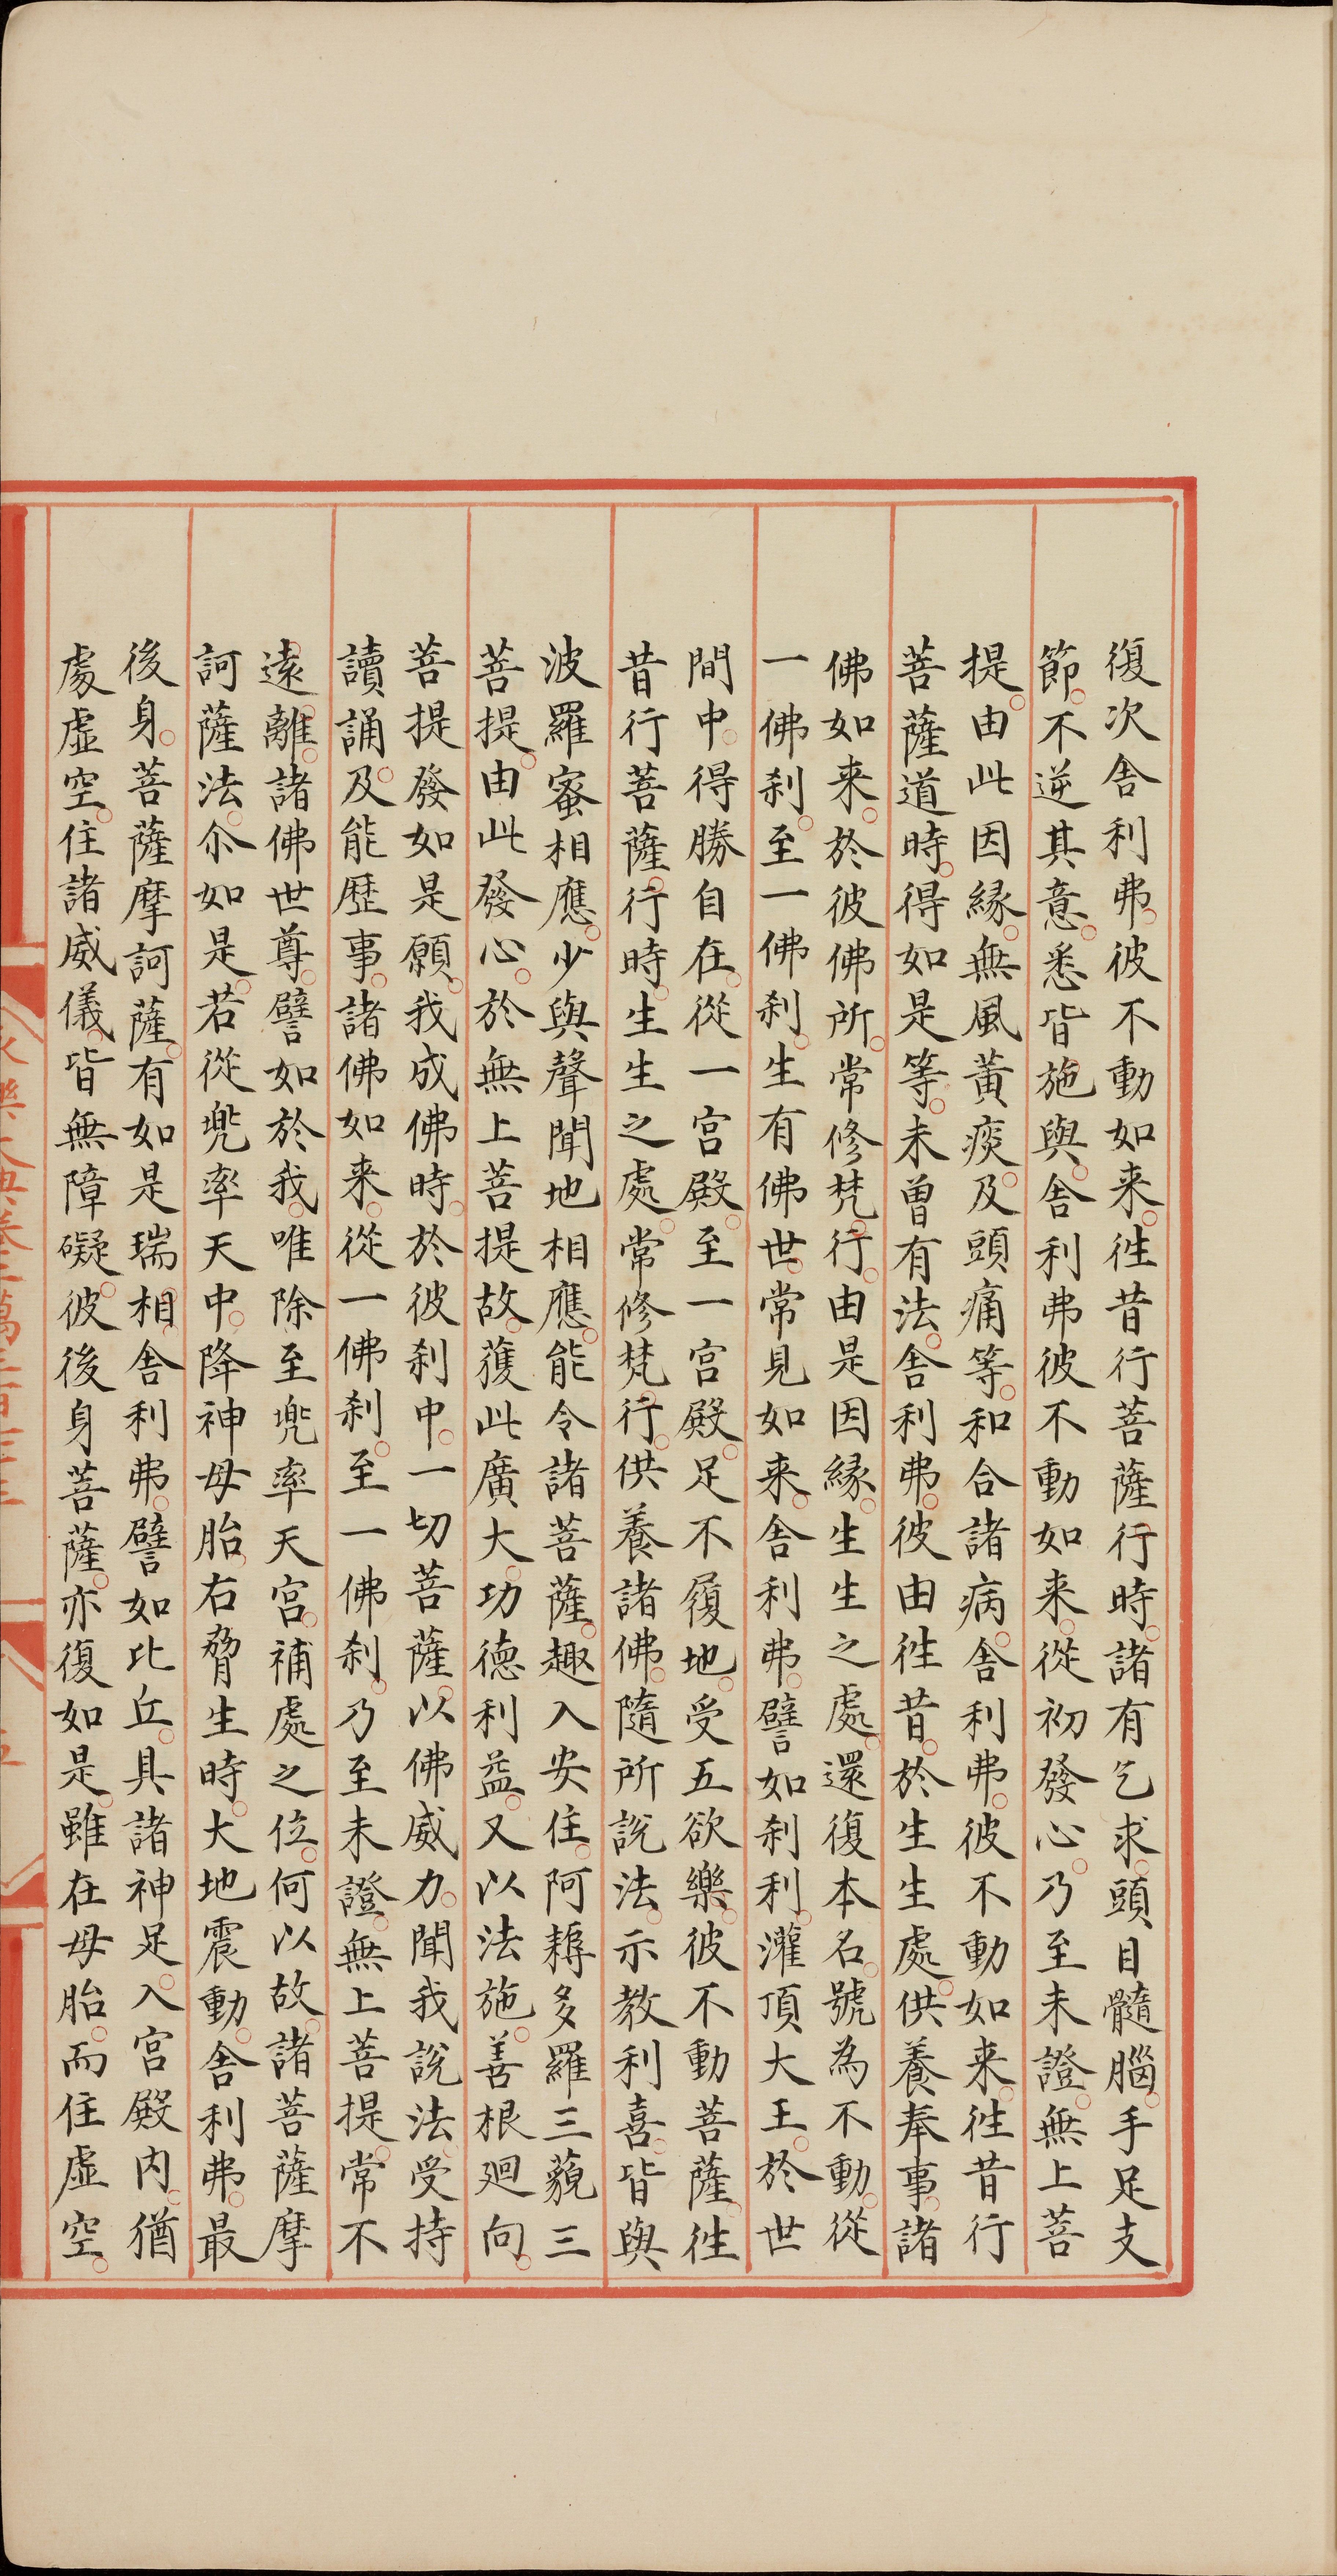 復次舍利弗。彼不動如来。徃昔行菩薩行時。諸有乞求。頭目髓腦。手足支
節。不逆其意。悉皆施與。舍利弗彼不動如来。從初發心。乃至未證。無上菩
提。由此因緣。無風黃痰。及頭痛等。和合諸病。舍利弗。彼不動如来。徃昔行
菩薩道時。得如是等。未曾有法。舍利弗。彼由徃昔。於生生處。供養奉事。諸
佛如来。於彼佛所。常修梵行。由是因緣。生生之處。還復本名。號為不動。從
一佛刹。至一佛刹。生有佛世。常見如来。舍利弗。譬如刹利。灌頂大王。於世
間中。得勝自在。從一宮殿。至一宮殿。足不履地。受五欲樂。彼不動菩薩。徃
昔行菩薩行時。生生之處。常修梵行。供養諸佛。隨所說法。示教利喜。皆與
波羅蜜相應。少與聲聞地相應。能令諸菩薩。趣入安住。阿耨多羅三藐三
菩提。由此發心。於無上菩提故。獲此廣大。功德利益。又以法施。善根廻向。
菩提發如是願。我成佛時。於彼刹中。一切菩薩。以佛威力。聞我說法。受持
讀誦。及能歷事。諸佛如来。從一佛刹。至一佛刹。乃至未證。無上菩提。常不
遠離。諸佛世尊。譬如於我。唯除至兜率天宮。補處之位。何以故。諸菩薩摩
訶薩法。尒如是。若從兜率天中。降神母胎。右脅生時。大地震動。舍利弗。最
後身。菩薩摩訶薩。有如是瑞相。舍利弗。譬如比丘。具諸神足。入宮殿内。猶
處虛空。住諸威儀。皆無障礙。彼後身菩薩。亦復如是。雖在母胎。而住虛空。